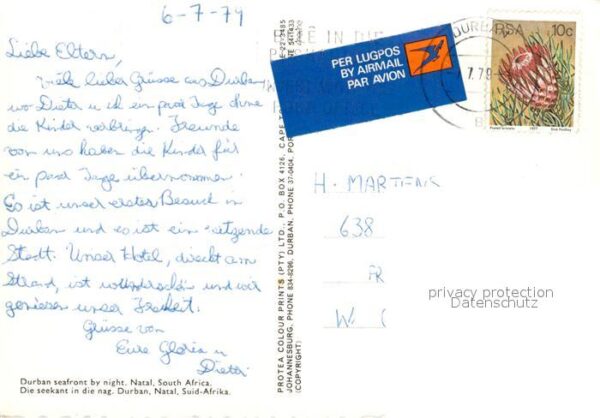 6-7-79
Liebe Eltern,
Viele liebe Grüsse aus Durban
wo Dieter u ich ein paar Tage ohne
die Kinder verbringen. Freunde
von uns haben die Kinder für
ein paar Tage übernommen.
Es ist unser erster Besuch in
Durban und es ist eine reizende
Stadt. Unser Hotel, direckt am
Strand, ist wunderschön und wir
geniesen unser Freiheit.
Grüsse von
Eure Gloria u
Dieter
Durban seafront by night. Natal, South Africa.
Die seekant in die nag. Durban, Natal, Suid-Afrika.
PROTEA COLOUR PRINTS (PTY) LTD., P.O. BOX 4126, CAPE
JOHANNESBURG, PHONE 834-6296, DURBAN, PHONE 37-0404,
(COPYRIGHT)
PER LUGPOS
BY AIRMAIL
PAR AVION
DURBAN
7.79
RSA 10c
1977
H. MARTENS
638
W.
privacy protection
Datenschutz